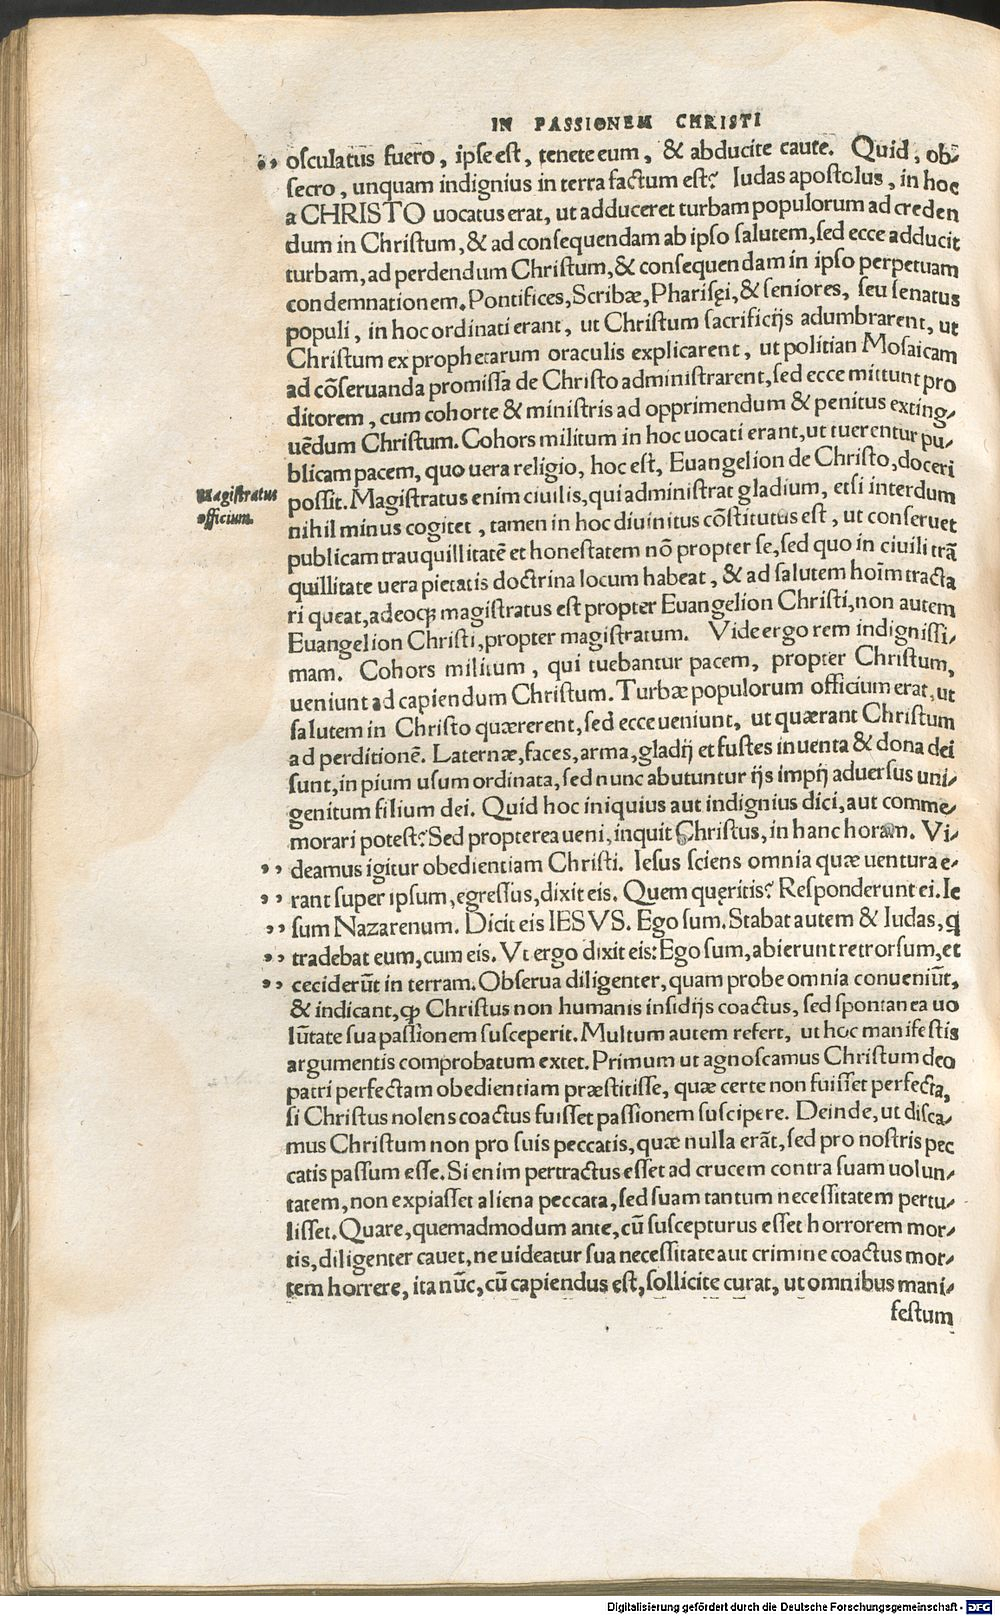 IN PASSIONEM CHRISTI
„ osculatus fuero, ipse est, tenete eum, & abducite caute. Quid, ob⸗
secro, unquam indignius in terra factum est? Iudas apostolus, in hoc
a CHRISTO uocatus erat, ut adduceret turbam populorum ad creden
dum in Christum, & ad consequendam ab ipso salutem, sed ecce adducit
turbam, ad perdendum Christum, & consequendam in ipso perpetuam
condemnationem. Pontifices, Scribæ, Pharisęi, & seniores, seu senatus
populi, in hoc ordinati erant, ut Christum sacrificijs adumbrarent, ut
Christum ex prophetarum oraculis explicarent, ut politian Mosaicam
ad cõseruanda promissa de Christo administrarent, sed ecce mittunt pro
ditorem, cum cohorte & ministris ad opprimendum & penitus exting⸗
uẽdum Christum. Cohors militum in hoc uocati erant, ut tuerentur pu⸗
blicam pacem, quo uera religio, hoc est, Euangelion de Christo, doceri
Magistratus
officium.
possit. Magistratus enim ciuilis, qui administrat gladium, etsi interdum
nihil minus cogitet, tamen in hoc diuinitus cõstitutus est, ut conseruet
publicam trauquillitatẽ et honestatem nõ propter se, sed quo in ciuili trã
quillitate uera pietatis doctrina locum habeat, & ad salutem hoĩm tracta
ri queat, adeoqꝫ magistratus est propter Euangelion Christi, non autem
Euangelion Christi, propter magistratum. Vide ergo rem indignissi⸗
mam. Cohors militum, qui tuebantur pacem, propter Christum,
ueniunt ad capiendum Christum. Turbæ populorum officium erat, ut
salutem in Christo quærerent, sed ecce ueniunt, ut quærant Christum
ad perditionẽ. Laternæ, faces, arma, gladij et fustes inuenta & dona dei
sunt, in pium usum ordinata, sed nunc abutuntur ijs impij aduersus uni⸗
genitum filium dei. Quid hoc iniquius aut indignius dici, aut comme⸗
morari potest? Sed propterea ueni, inquit Christus, in hanc horam. Vi⸗
„ deamus igitur obedientiam Christi. Iesus sciens omnia quæ uentura e⸗
„ rant super ipsum, egressus, dixit eis. Quem quęritis? Responderunt ei. Ie
„ sum Nazarenum. Dicit eis IESVS. Ego sum. Stabat autem & Iudas, q̃
„ tradebat eum, cum eis. Vt ergo dixit eis: Ego sum, abierunt retrorsum, et
„ ceciderũt in terram. Obserua diligenter, quam probe omnia conueniũt,
& indicant, ꝙ Christus non humanis insidijs coactus, sed spontanea uo
lũtate sua passionem susceperit. Multum autem refert, ut hoc manifestis
argumentis comprobatum extet. Primum ut agnoscamus Christum deo
patri perfectam obedientiam præstitisse, quæ certe non fuisset perfecta,
si Christus nolens coactus fuisset passionem suscipere. Deinde, ut disca⸗
mus Christum non pro suis peccatis, quæ nulla erãt, sed pro nostris pec
catis passum esse. Si enim pertractus esset ad crucem contra suam uolun⸗
tatem, non expiasset aliena peccata, sed suam tantum necessitatem pertu⸗
lisset. Quare, quemadmodum ante, cũ suscepturus esset horrorem mor⸗
tis, diligenter cauet, ne uideatur sua necessitate aut crimine coactus mor⸗
tem horrere, ita nũc, cũ capiendus est, sollicite curat, ut omnibus mani⸗
festum
Digitalisierung gefördert durch die Deutsche Forschungsgemeinschaft - DFG